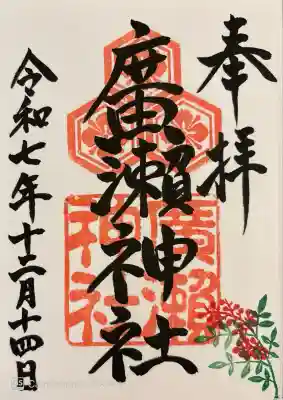 奉拝
廣瀬神社
廣瀬神社
令和七年十二月十四日